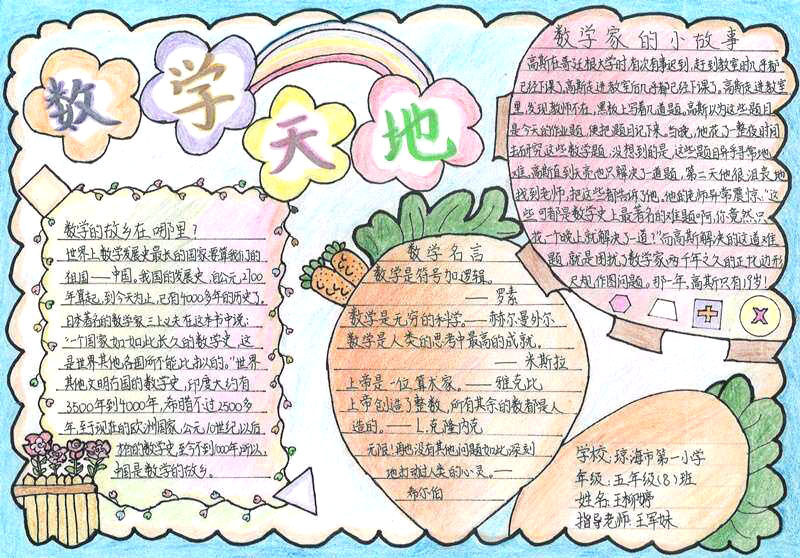 数学天地
数学的故乡在哪里？
世界上数学发展史最长的国家要算我们的
祖国——中国。我国的发展史，始公元前2700
年算起，到今天为止，已有4000多年的历史了。
日本著名的数学家三上义夫在这本书中说：
“一个国家如此长久的数学史，这
是世界其他各国所不能比拟的。”世界
其他文明古国的数学史，印度大约有
3500年到4000年，希腊不过2500多
年，至于现在的欧洲国家，公元10世纪以后
的数学史，至今不到1000年。所以，
中国是数学的故乡。
数学名言
数学是符号加逻辑。
——罗素
数学是无穷的科学。——赫尔曼外尔
数学是人类的思考中最高的成就。
——米斯拉
上帝是一位算术家。——雅克比
上帝创造了整数，所有其余的数都是人
造的。——L.克隆内克
无限！再也没有其他问题如此深刻
地打动过人类的心灵。——
希尔伯
数学家的小故事
高斯在哥廷根大学时，有次有事迟到，赶到教室时几乎都
已经下课了，高斯走进教室后几乎都已经下课了，高斯走进教室
里，发现教师不在，黑板上写着几道题。高斯以为这些题目
是今天的作业题，便把题目记下来，当晚，他花了一整夜时间
去研究这些数学题，没想到的是，这些题目异乎寻常地
难，高斯直到天亮也只解决了一道题，第二天他很沮丧地
找到老师，把这些都告诉了他，他的老师异常震惊，“这
些可都是数学史上最著名的难题啊，你竟然只
花一个晚上就解决了一道？”而高斯解决的这道难
题，就是困扰了数学家两千年之久的正十七边形
尺规作图问题。那一年，高斯只有19岁！
学校：琼海市第一小学
年级：五年级(8)班
姓名：王柳婷
指导老师：王军妹